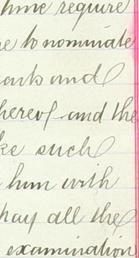 time require
to nominate
and
hereof and the
such
him with
pay all the
examination